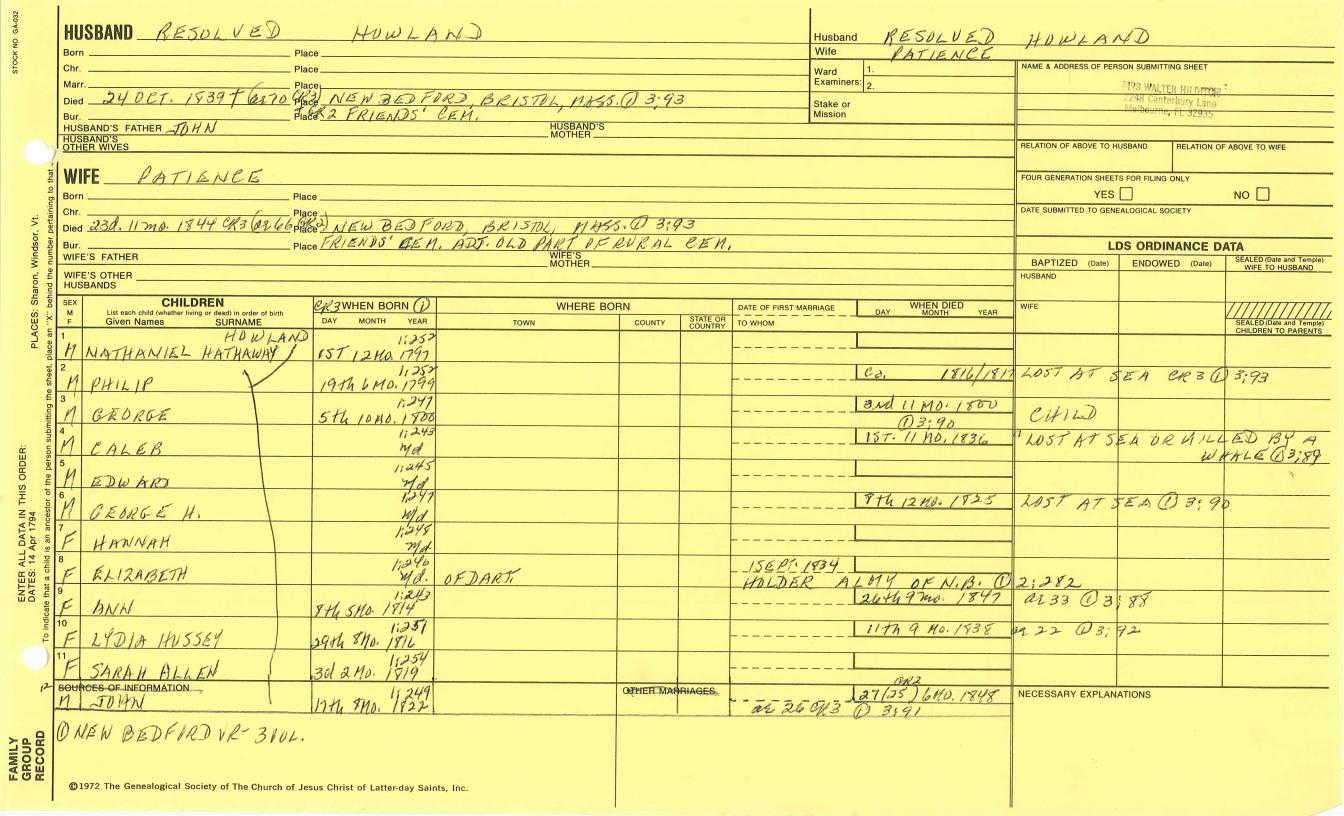 STOCK NO. GA-032
HUSBAND RESOLVED HOWLAND
Born Place
Chr. Place
Marr. Place
Died 24 OCT. 1839 Place NEW BEDFORD, BRISTOL, MASS. ① 3;93
Bur. Place CR2 FRIENDS' CEM.
HUSBAND'S FATHER JOHN HUSBAND'S MOTHER
HUSBAND'S OTHER WIVES
Husband RESOLVED HOWLAND
Wife PATIENCE
Ward Examiners: 1. 2.
Stake or Mission
NAME & ADDRESS OF PERSON SUBMITTING SHEET
MRS WALTER
2248 Canterbury Lane
Melbourne, FL 32935
RELATION OF ABOVE TO HUSBAND RELATION OF ABOVE TO WIFE
FOUR GENERATION SHEETS FOR FILING ONLY
YES NO
DATE SUBMITTED TO GENEALOGICAL SOCIETY
WIFE PATIENCE
Born Place
Chr. Place
Died 23d. 11 mo. 1844 CR3 (ae 66 CR2) Place NEW BEDFORD, BRISTOL, MASS. ① 3;93
Bur. Place FRIENDS' CEM. ADJ. OLD PART OF RURAL CEM.
WIFE'S FATHER WIFE'S MOTHER
WIFE'S OTHER HUSBANDS
LDS ORDINANCE DATA
BAPTIZED (Date) ENDOWED (Date) SEALED (Date and Temple) WIFE TO HUSBAND
HUSBAND
WIFE
SEALED (Date and Temple) CHILDREN TO PARENTS
SEX M F
CHILDREN
List each child (whether living or dead) in order of birth
Given Names SURNAME
CR3 WHEN BORN ①
DAY MONTH YEAR
WHERE BORN
TOWN COUNTY STATE OR COUNTRY
DATE OF FIRST MARRIAGE
TO WHOM
WHEN DIED
DAY MONTH YEAR
1 HOWLAND 1;252
M NATHANIEL HATHAWAY 1ST 12 MO. 1797
2 1;252 Ca. 1816/1817 LOST AT SEA CR3 ① 3;93
M PHILIP 19th 6 MO. 1799
3 1;247 3nd 11 MO. 1800
M GEORGE 5th 10 MO. 1800 ① 3;90 CHILD
4 1;243 1ST. 11 MO. 1836 LOST AT SEA OR KILLED BY A
M CALEB n/d WHALE ① 3;89
5 1;245
M EDWARD n/d
6 1;247 8th 12 MO. 1825 LOST AT SEA ① 3;90
M GEORGE H. n/d
7 1;248
F HANNAH n/d
8 1;246 1 SEPT. 1834
F ELIZABETH n/d. OF DART. HOLDER ALMY OF N.B. ① 2;282
9 1;243 26th 9 mo. 1847 ae 33 ① 3;88
F ANN 8th 5 MO. 1814
10 1;251 11th 9 MO. 1838 ae 22 ① 3;92
F LYDIA HUSSEY 29th 8 MO. 1816
11 1;254
F SARAH ALLEN 3d 2 MO. 1819
12 SOURCES OF INFORMATION 1;249 OTHER MARRIAGES CR2 27 (25) 6 MO. 1848 NECESSARY EXPLANATIONS
M JOHN 17th 8 MO. 1822 ae 26 CR3 ① 3;91
① NEW BEDFORD VR- 3 VOL.
©1972 The Genealogical Society of The Church of Jesus Christ of Latter-day Saints, Inc.
ENTER ALL DATA IN THIS ORDER:
DATES: 14 Apr 1794
PLACES: Sharon, Windsor, Vt.
To indicate that a child is an ancestor of the person submitting the sheet, place an "X" behind the number pertaining to that
FAMILY GROUP RECORD